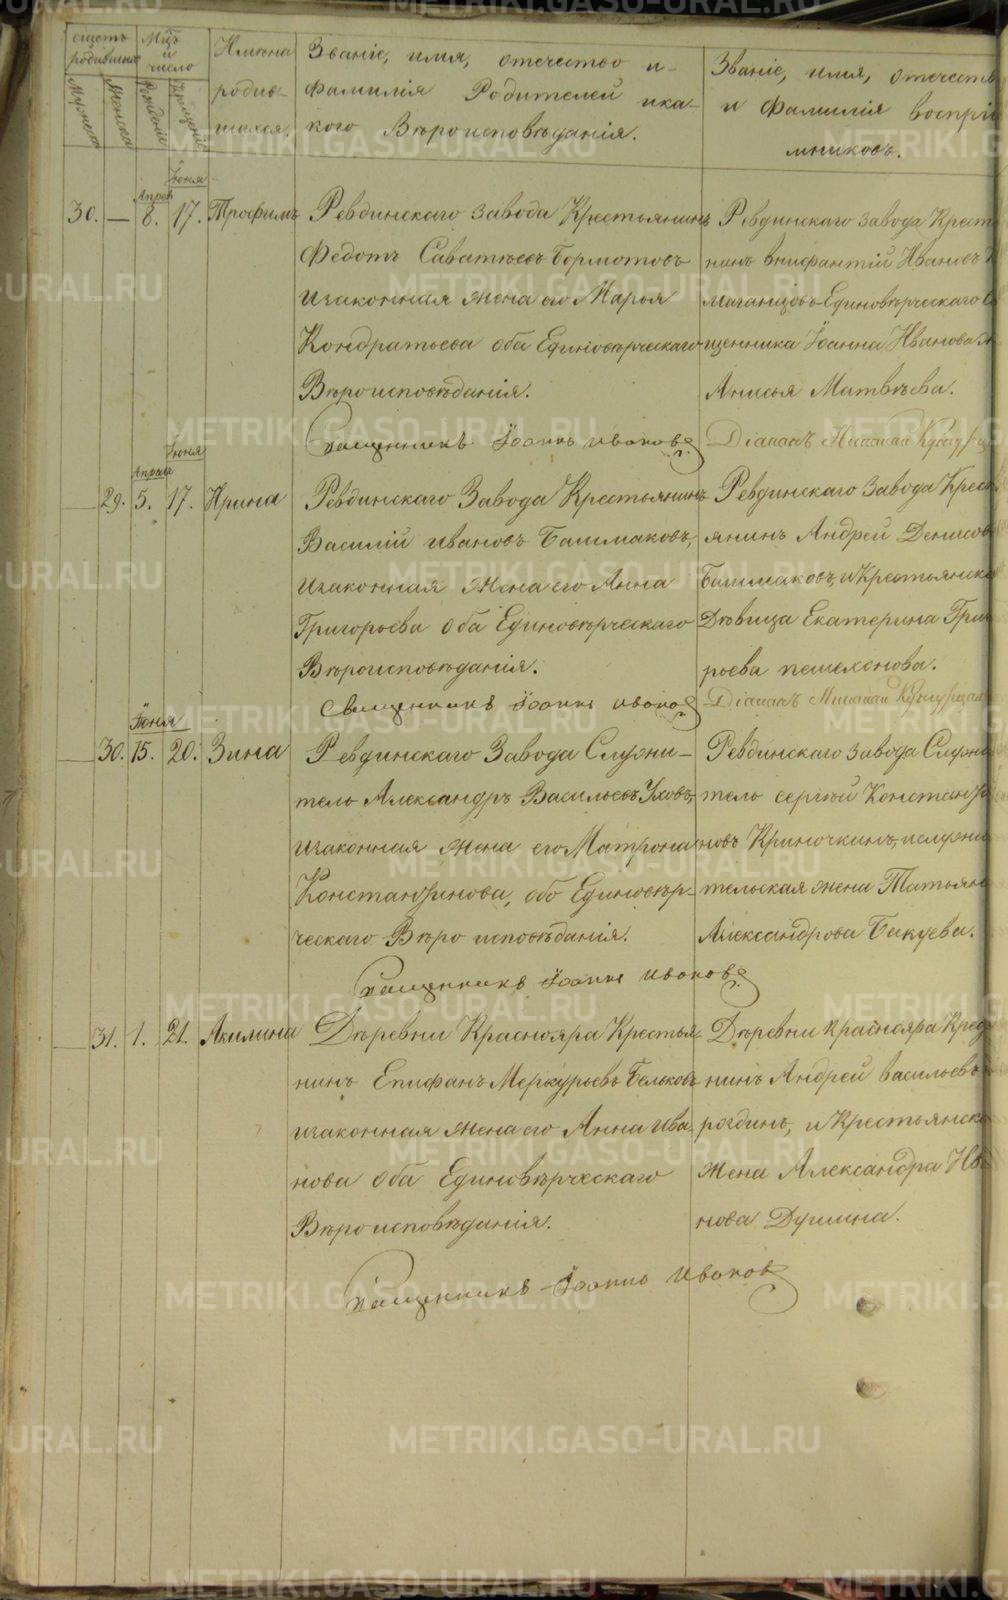 Щетъ родившихся
Мцъ и число
Имена родив-
шихся.
Званіе, имя, отечество и
фамилія Родителей и ка-
кого Вѣроисповѣданія.
Званіе, имя, отечеств
и фамилія воспрі
мниковъ.
Мужеска
Женска
Рожденія
Крещенія
Апрел
Іюня
30. — 8. 17. Трофимъ
Ревдинскаго завода Крестьянинъ
Федотъ Саватѣевъ Бормотовъ
изаконная жена его Марья
Кондратьева оба Единовѣрческаго
Вѣроисповѣданія.
Священникъ Іоаннъ Ивановъ
Ревдинскаго завода Крест
нинъ Внифантій Ивановъ
Единовѣрческаго С
щенника Іоанна Иванова
Анисья Матвѣева.
Діаконъ
Апреля
Іюня
29. 5. 17. Ирина
Ревдинскаго Завода Крестьянинъ
Василій Ивановъ Башмаковъ,
изаконная жена его Анна
Григорьева оба Единовѣрческаго
Вѣроисповѣданія.
Священникъ Іоаннъ Ивановъ
Ревдинскаго завода Крест
янинъ Андрей Денисов
Башмаковъ, и Крестьянска
Дѣвица Екатерина Григ
рьева пешехонова.
Діаконъ
Іюня
30. 15. 20. Зина
Ревдинскаго Завода Служи-
тель Александръ Васильевъ Уховъ,
изаконная жена его Матрона
Константинова, обо Единовѣр-
ческаго Вѣро исповѣданія.
Священникъ Іоаннъ Ивановъ
Ревдинскаго завода Служи
тель сергѣй Константи
новъ Криночкинъ, ислужи
тельская жена Татьяна
Александрова Бакуева.
31. 1. 21. Акилина
Дѣревни Краснояра Крестья
нинъ Епифанъ Меркурьевъ Бельковъ
изаконная жена его Анна Ива-
нова оба Единовѣрческаго
Вѣроисповѣданія.
Священникъ Іоаннъ Ивановъ
Дѣревни Краснояра Крест
нинъ Андрей васильевъ
рогдинъ, и Крестьянска
жена Александра Ив
нова Душина.
METRIKI.GASO-URAL.RU